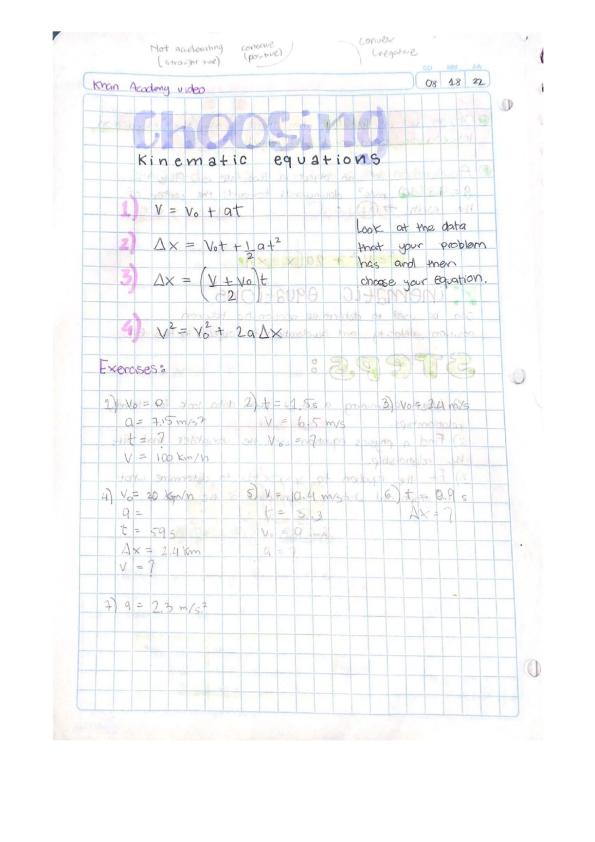 Not accelerating concave convex
(straight line) (positive) (negative)
DD MM AA
Khan Academy video 08 18 22
choosing
kinematic equations
1) V = V₀ + at
2) Δx = V₀t + 1/2 at²
3) Δx = (V + V₀ / 2) t
4) V² = V₀² + 2aΔx
Look at the data
that your problem
has and then
choose your equation.
Exercises:
1) V₀ = 0
a = 7.15 m/s²
t = ?
V = 100 km/h
2) t = 1.5s
V = 6.5 m/s
V₀ = ?
3) V₀ = 2.4 m/s
4) V₀ = 20 km/h
a =
t = 59s
Δx = 1.4 km
V = ?
5) V = 10.4 m/s
t = 3.3
V₀ = 0 m/s
a = ?
6) t = 0.9 s
Δx = ?
7) a = 2.3 m/s²